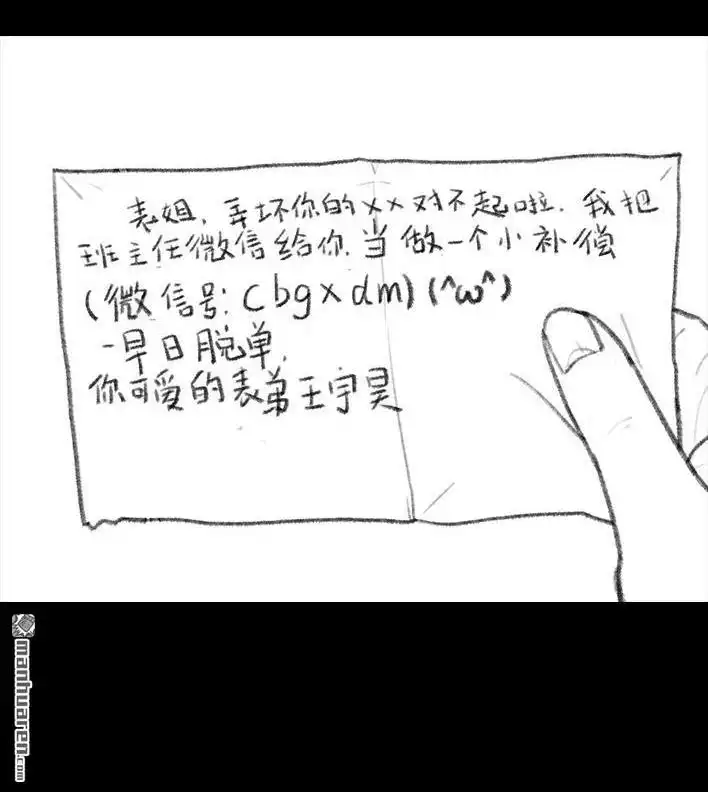 表姐，弄坏你的××对不起啦．我把
班主任微信给你．当做一个小补偿
(微信号: cbgxdm)(^ω^)
-早日脱单．
你可爱的表弟王宇昊
manhuaren.com